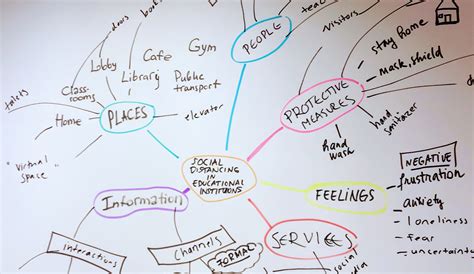 PEOPLE
Visitors
stay home
mask, shield
PROTECTIVE
MEASURES
hand
sanitaizer
hand
wash
Gym
Cafe
Lobby
Library
Public
transport
Class-
rooms
toilets
elevator
PLACES
Home
"virtual
space"
SOCIAL
DISTANCING
IN
EDUCATIONAL
INSTITUTIONS
Information
Interactions
Channels
FORMAL
SERVICES
social
FEELINGS
NEGATIVE
frustration
anxiety
loneliness
fear
uncertainty